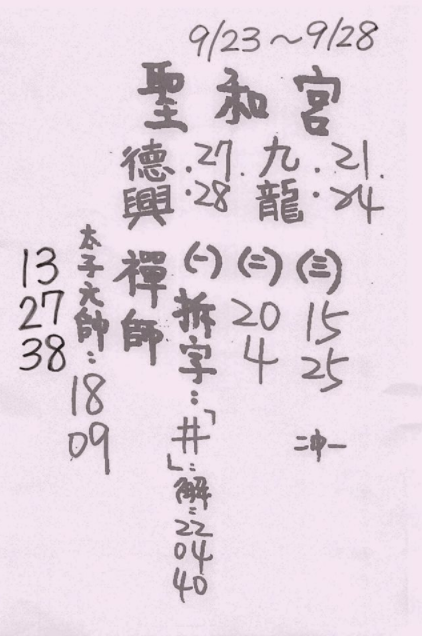 9/23～9/28
聖和宮
德興：27.28
九龍：21.24
禪師
(一)拆字：「井」：解：22 04 40
(二)20 4
(三)15 25
二冲一
太子元帥：18 09
13
27
38